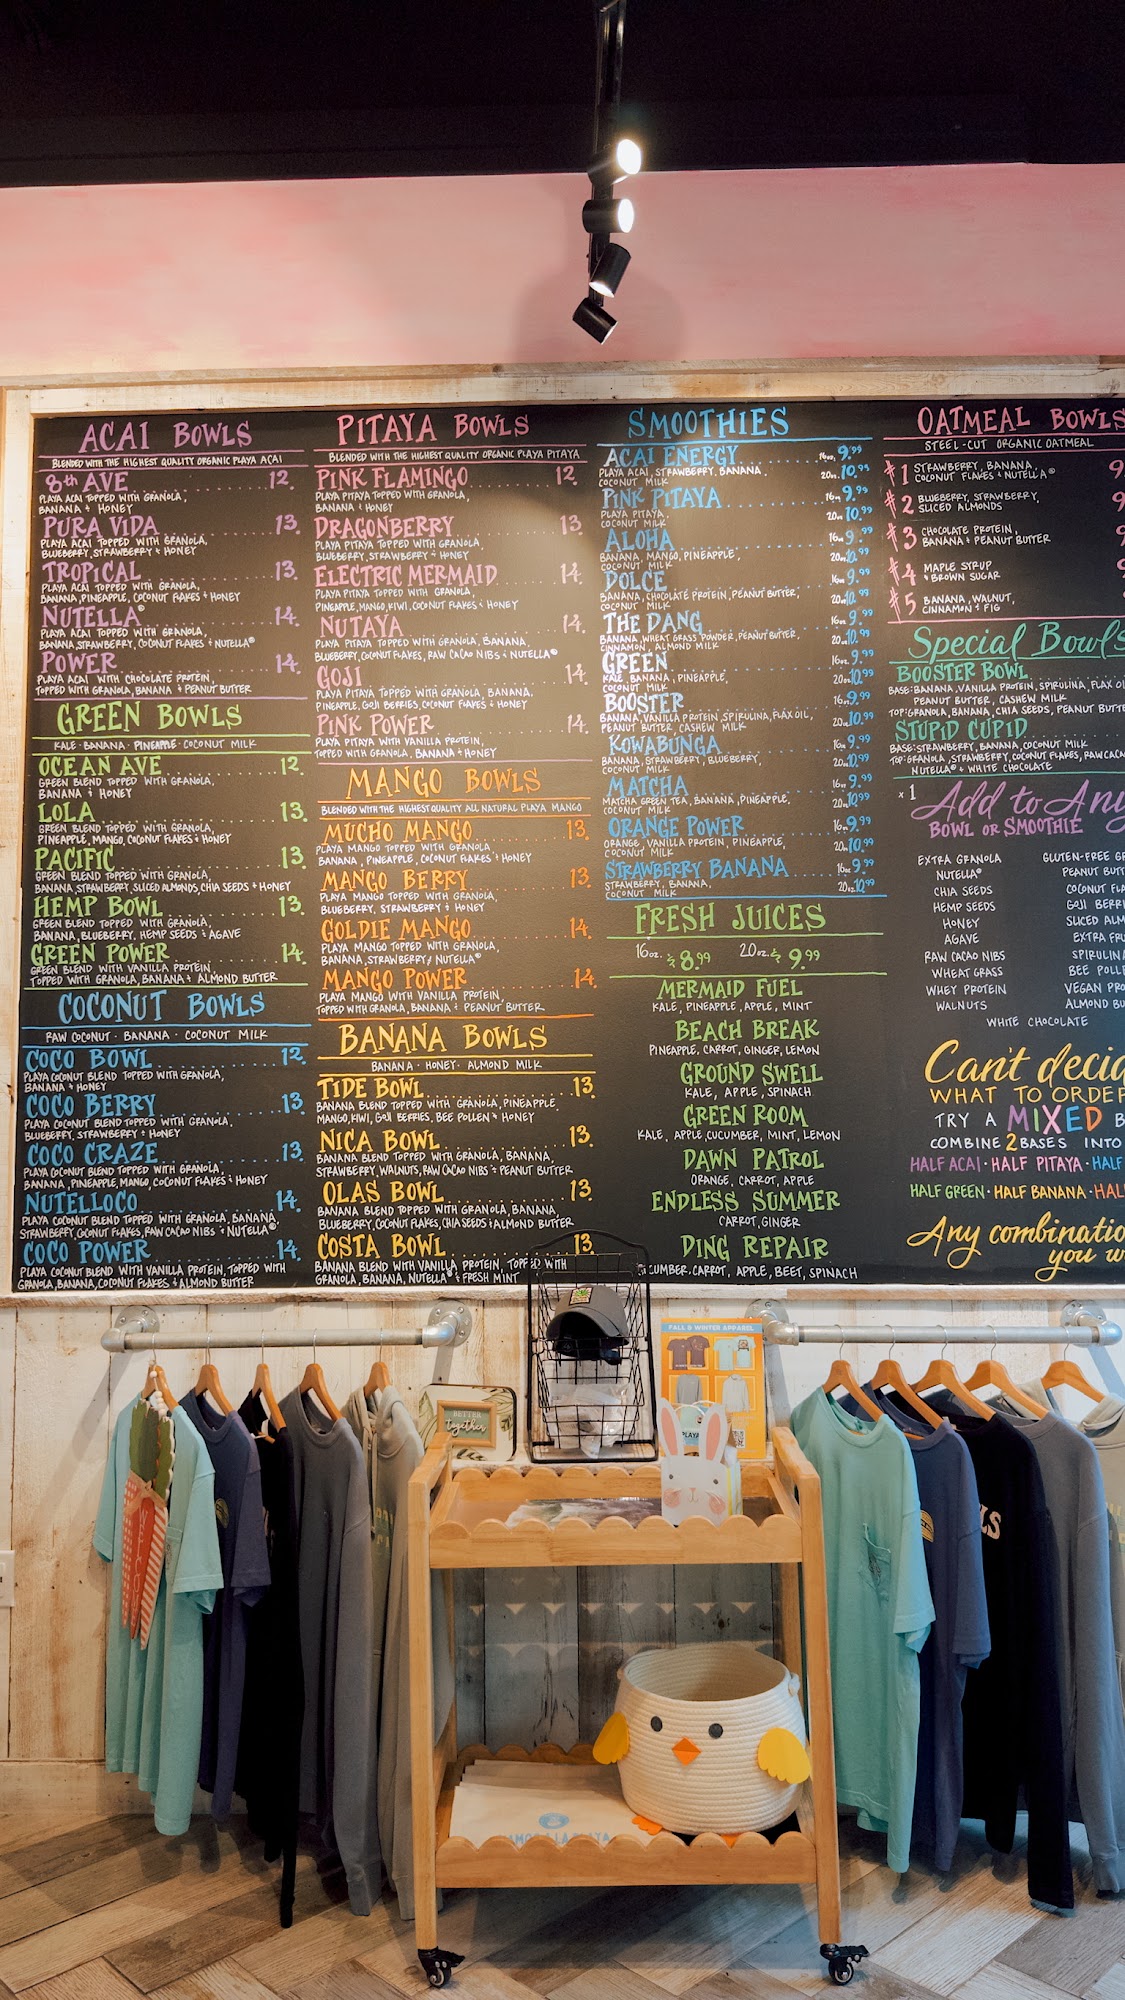 ACAI BOWLS
BLENDED WITH THE HIGHEST QUALITY ORGANIC PLAYA ACAI
8th AVE 12.
PLAYA ACAI TOPPED WITH GRANOLA,
BANANA + HONEY
PURA VIDA 13.
PLAYA ACAI TOPPED WITH GRANOLA,
BLUEBERRY, STRAWBERRY + HONEY
TROPICAL 13.
PLAYA ACAI TOPPED WITH GRANOLA,
BANANA, PINEAPPLE, COCONUT FLAKES + HONEY
NUTELLA® 14.
PLAYA ACAI TOPPED WITH GRANOLA,
STRAWBERRY, COCONUT FLAKES + NUTELLA®
POWER 14.
PLAYA ACAI WITH CHOCOLATE PROTEIN,
TOPPED WITH GRANOLA, BANANA + PEANUT BUTTER
GREEN BOWLS
KALE · BANANA · PINEAPPLE · COCONUT MILK
OCEAN AVE 12.
GREEN BLEND TOPPED WITH GRANOLA,
BANANA + HONEY
LOLA 13.
GREEN BLEND TOPPED WITH GRANOLA,
PINEAPPLE, MANGO, COCONUT FLAKES + HONEY
PACIFIC 13.
GREEN BLEND TOPPED WITH GRANOLA,
BANANA, STRAWBERRY, SLICED ALMONDS, CHIA SEEDS + HONEY
HEMP BOWL 13.
GREEN BLEND TOPPED WITH GRANOLA,
BANANA, BLUEBERRY, HEMP SEEDS + AGAVE
GREEN POWER 14.
GREEN BLEND WITH VANILLA PROTEIN,
TOPPED WITH GRANOLA, BANANA + ALMOND BUTTER
COCONUT BOWLS
RAW COCONUT · BANANA · COCONUT MILK
COCO BOWL 12.
PLAYA COCONUT BLEND TOPPED WITH GRANOLA,
BANANA + HONEY
COCO BERRY 13.
PLAYA COCONUT BLEND TOPPED WITH GRANOLA,
BLUEBERRY, STRAWBERRY + HONEY
COCO CRAZE 13.
PLAYA COCONUT BLEND TOPPED WITH GRANOLA,
BANANA, PINEAPPLE, MANGO, COCONUT FLAKES + HONEY
NUTELLOCO 14.
PLAYA COCONUT BLEND TOPPED WITH GRANOLA, BANANA,
STRAWBERRY, COCONUT FLAKES, RAW CACAO NIBS + NUTELLA®
COCO POWER 14.
PLAYA COCONUT BLEND WITH VANILLA PROTEIN, TOPPED WITH
GRANOLA, BANANA, COCONUT FLAKES + ALMOND BUTTER
PITAYA BOWLS
BLENDED WITH THE HIGHEST QUALITY ORGANIC PLAYA PITAYA
PINK FLAMINGO 12.
PLAYA PITAYA TOPPED WITH GRANOLA,
BANANA + HONEY
DRAGONBERRY 13.
PLAYA PITAYA TOPPED WITH GRANOLA,
BLUEBERRY, STRAWBERRY + HONEY
ELECTRIC MERMAID 14.
PLAYA PITAYA TOPPED WITH GRANOLA,
PINEAPPLE, MANGO, KIWI, COCONUT FLAKES + HONEY
NUTAYA 14.
PLAYA PITAYA TOPPED WITH GRANOLA, BANANA,
BLUEBERRY, COCONUT FLAKES, RAW CACAO NIBS + NUTELLA®
GOJI 14.
PLAYA PITAYA TOPPED WITH GRANOLA, BANANA,
PINEAPPLE, GOJI BERRIES, COCONUT FLAKES + HONEY
PINK POWER 14.
PLAYA PITAYA WITH VANILLA PROTEIN,
TOPPED WITH GRANOLA, BANANA + HONEY
MANGO BOWLS
BLENDED WITH THE HIGHEST QUALITY ALL NATURAL PLAYA MANGO
MUCHO MANGO 13.
PLAYA MANGO TOPPED WITH GRANOLA,
BANANA, PINEAPPLE, COCONUT FLAKES + HONEY
MANGO BERRY 13.
PLAYA MANGO TOPPED WITH GRANOLA,
BLUEBERRY, STRAWBERRY + HONEY
GOLDIE MANGO 14.
PLAYA MANGO TOPPED WITH GRANOLA,
BANANA, STRAWBERRY + NUTELLA®
MANGO POWER 14.
PLAYA MANGO WITH VANILLA PROTEIN,
TOPPED WITH GRANOLA, BANANA + PEANUT BUTTER
BANANA BOWLS
BANANA · HONEY · ALMOND MILK
TIDE BOWL 13.
BANANA BLEND TOPPED WITH GRANOLA, PINEAPPLE,
MANGO, KIWI, GOJI BERRIES, BEE POLLEN + HONEY
NICA BOWL 13.
BANANA BLEND TOPPED WITH GRANOLA, BANANA,
STRAWBERRY, WALNUTS, RAW CACAO NIBS + PEANUT BUTTER
OLAS BOWL 13.
BANANA BLEND TOPPED WITH GRANOLA, BANANA,
BLUEBERRY, COCONUT FLAKES, CHIA SEEDS + ALMOND BUTTER
COSTA BOWL 13.
BANANA BLEND WITH VANILLA PROTEIN, TOPPED WITH
GRANOLA, BANANA, NUTELLA® + FRESH MINT
SMOOTHIES
ACAI ENERGY 16oz. 9.99
PLAYA ACAI, STRAWBERRY, BANANA, 20oz. 10.99
COCONUT MILK
PINK PITAYA 16oz. 9.99
PLAYA PITAYA, 20oz. 10.99
COCONUT MILK
ALOHA 16oz. 9.99
BANANA, MANGO, PINEAPPLE, 20oz. 10.99
COCONUT MILK
DOLCE 16oz. 9.99
BANANA, CHOCOLATE PROTEIN, PEANUT BUTTER, 20oz. 10.99
COCONUT MILK
THE DANG 16oz. 9.99
BANANA, WHEAT GRASS POWDER, PEANUT BUTTER, 20oz. 10.99
CINNAMON, ALMOND MILK
GREEN 16oz. 9.99
KALE, BANANA, PINEAPPLE, 20oz. 10.99
COCONUT MILK
BOOSTER 16oz. 9.99
BANANA, VANILLA PROTEIN, SPIRULINA, FLAX OIL, 20oz. 10.99
PEANUT BUTTER, CASHEW MILK
KOWABUNGA 16oz. 9.99
BANANA, STRAWBERRY, BLUEBERRY, 20oz. 10.99
COCONUT MILK
MATCHA 16oz. 9.99
MATCHA GREEN TEA, BANANA, PINEAPPLE, 20oz. 10.99
COCONUT MILK
ORANGE POWER 16oz. 9.99
ORANGE, VANILLA PROTEIN, PINEAPPLE, 20oz. 10.99
COCONUT MILK
STRAWBERRY BANANA 16oz. 9.99
STRAWBERRY, BANANA, 20oz. 10.99
COCONUT MILK
FRESH JUICES
16oz. $8.99 20oz. $9.99
MERMAID FUEL
KALE, PINEAPPLE, APPLE, MINT
BEACH BREAK
PINEAPPLE, CARROT, GINGER, LEMON
GROUND SWELL
KALE, APPLE, SPINACH
GREEN ROOM
KALE, APPLE, CUCUMBER, MINT, LEMON
DAWN PATROL
ORANGE, CARROT, APPLE
ENDLESS SUMMER
CARROT, GINGER
DING REPAIR
CUMBER, CARROT, APPLE, BEET, SPINACH
OATMEAL BOWLS
STEEL-CUT ORGANIC OATMEAL
#1 STRAWBERRY, BANANA, 9
COCONUT FLAKES + NUTELLA®
#2 BLUEBERRY, STRAWBERRY, 9
SLICED ALMONDS
#3 CHOCOLATE PROTEIN, 9
BANANA + PEANUT BUTTER
#4 MAPLE SYRUP 9
+ BROWN SUGAR
#5 BANANA, WALNUT, 9
CINNAMON + FIG
Special Bowls
BOOSTER BOWL
BASE: BANANA, VANILLA PROTEIN, SPIRULINA, FLAX OI
PEANUT BUTTER, CASHEW MILK
TOP: GRANOLA, BANANA, CHIA SEEDS, PEANUT BUTTE
STUPID CUPID
BASE: STRAWBERRY, BANANA, COCONUT MILK
TOP: GRANOLA, STRAWBERRY, COCONUT FLAKES, RAW CACA
NUTELLA® + WHITE CHOCOLATE
x 1 Add to Any
BOWL OR SMOOTHIE
EXTRA GRANOLA GLUTEN-FREE GR
NUTELLA® PEANUT BUT
CHIA SEEDS COCONUT FLA
HEMP SEEDS GOJI BERRI
HONEY SLICED ALM
AGAVE EXTRA FRU
RAW CACAO NIBS SPIRULINA
WHEAT GRASS BEE POLLE
WHEY PROTEIN VEGAN PRO
WALNUTS ALMOND BU
WHITE CHOCOLATE
Can't decid
WHAT TO ORDER
TRY A MIXED B
COMBINE 2 BASES INTO
HALF ACAI · HALF PITAYA · HALF
HALF GREEN · HALF BANANA · HAL
Any combinatio
you w
FALL & WINTER APPAREL
BETTER
together
PLAYA
WELCOME